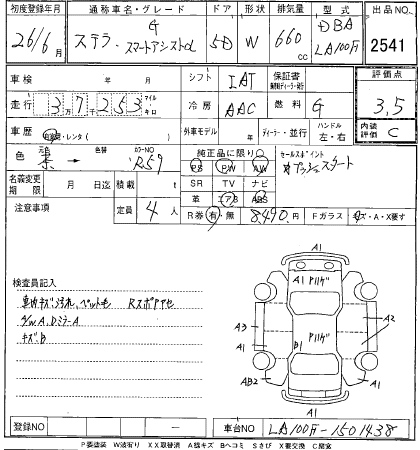 初度登録年月 通称車名・グレード ドア 形状 排気量 型式 出品NO.
26/6月 ステラ G スマートアシスト 5D W 660cc DBA LA100F 2541
車検 年 月 シフト IAT 保証書 評価点
走行 3万7千253 マイル キロ 冷房 AAC 燃料 G 3.5
車歴 自家用・レンタ( ) 外車モデル 年 ディーラー・並行 ハンドル 左・右 内装評価 C
色 元色 茶 → 色替 カラーNO R59 純正品に限り セールスポイント
PS PW AW プッシュスタート
名義変更期限 月 日迄 積載 t SR TV ナビ
革 エアB ABS
注意事項 定員 4人 R券 有・無 8,490円 Fガラス キズ・A・X要す
検査員記入
車内キズ、汚れ、ペット毛 Rスポアセ
A/W A、DミラーA
キズ、B
A1
A1 パリハゲ
A1
A3 パリハゲ A2
B1
AB2 A1
A1
登録NO 車台NO LA100F-1501438
P要塗装 W波有り XX取替済 A線キズ Bヘコミ Sさび X要交換 C腐食